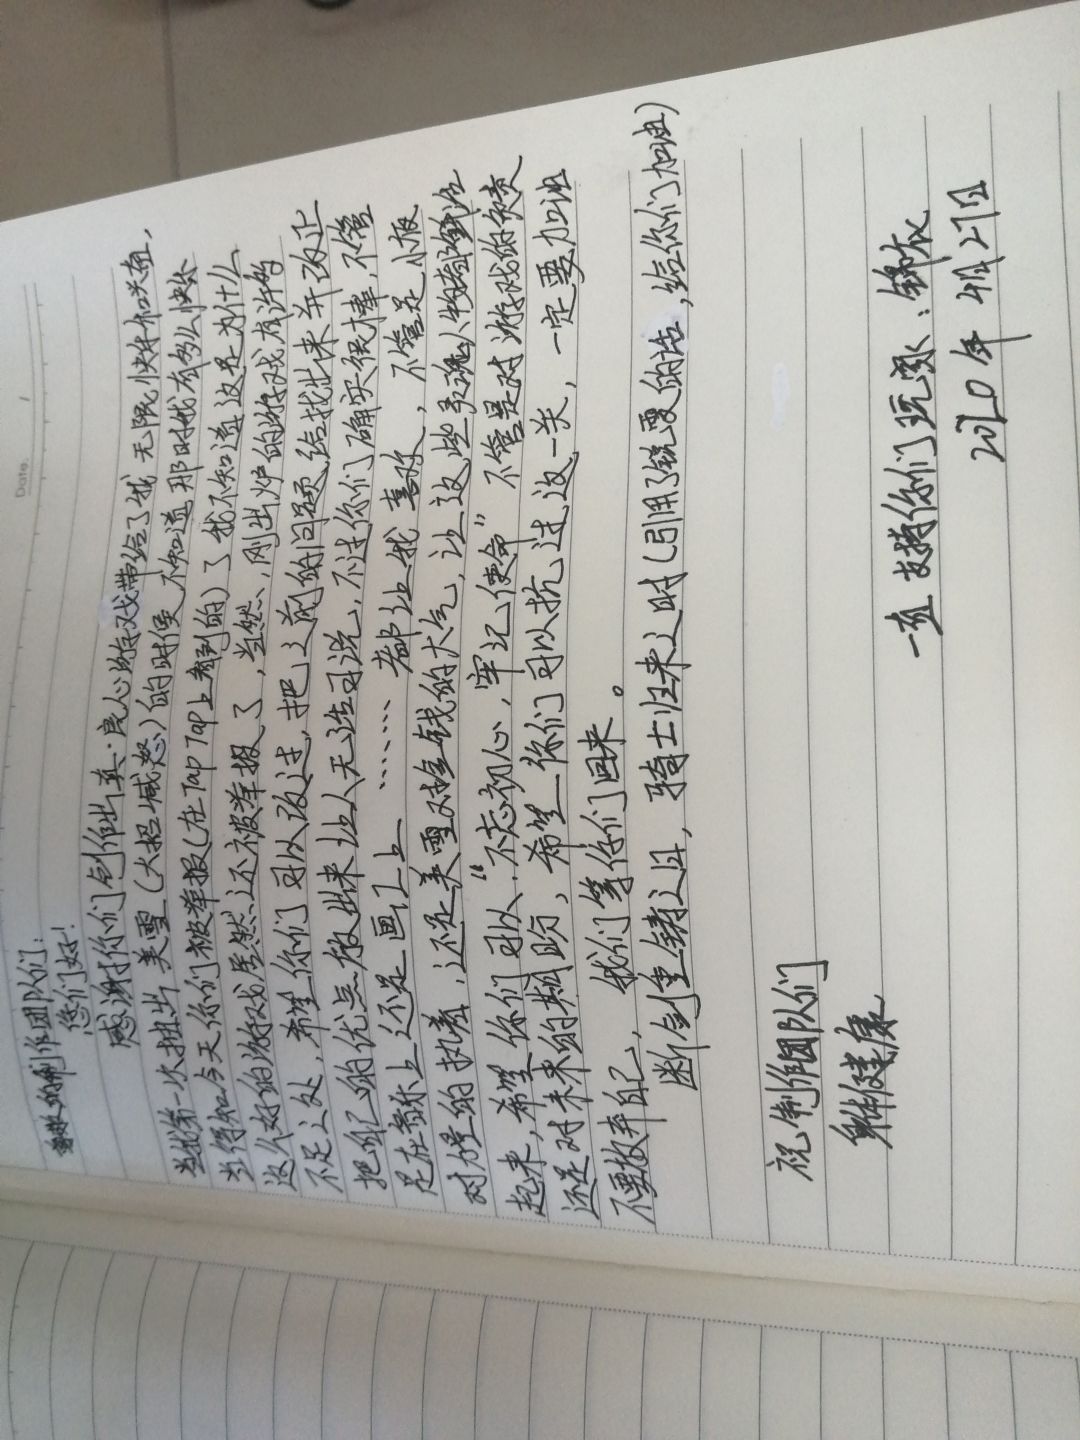 Date: /
尊敬的制作团队们:
您们好!
感谢你们创作出真·良心游戏带给了我无限快乐和关血,
当我第一次抽出美雪(大招喊怒)的时侯,不知道那时我有多么快乐
当得知今天你们被举报(在TapTap上看到的)了我不知道这是为什么
这么好的游戏居然还被举报了,当然,刚出炉的游戏有许多
不足之处,希望你们可以改过,把之前的问题给找出来并改正
把自己的优点放出来让人无话可说,不过你们确实很棒,不管
是在音乐上还是画工上………都让我喜欢,不管是小报
对力量的执着,还是美雪对金钱的大气,让这些灵魂人物鲜活
起来,希望你们可以“不忘初心,牢记使命”不管是对游戏的负责
还是对未来的期盼,希望你们可以抗过这一关,一定要加油
不要放弃自己,我们等你们回来。
断剑重铸之日,骑士归来之时(引用了锐雯的话,给你们加油)
祝制作团队们
身体健康
一直支持你们玩家:
2020年4月27日